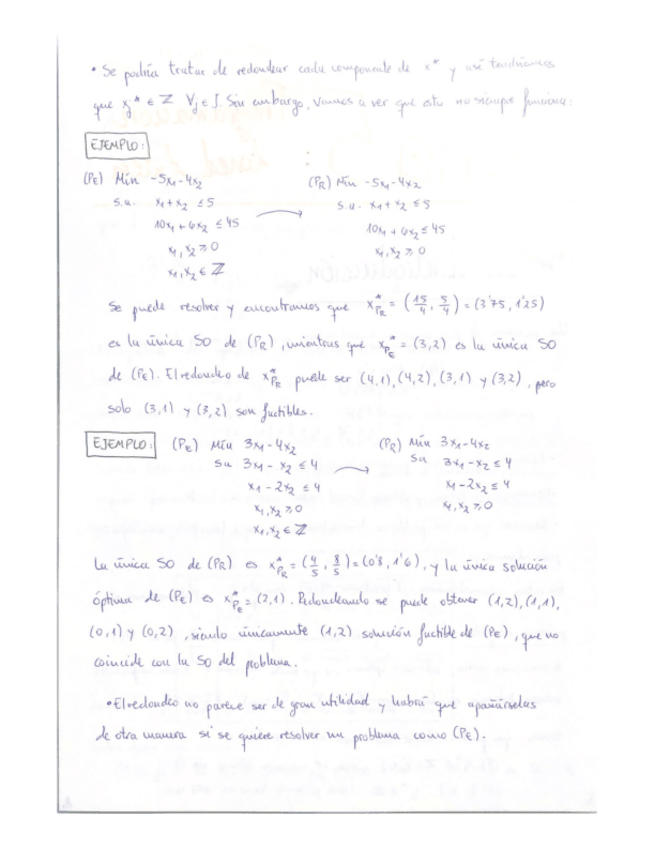 • Se podría tratar de redondear cada componente de x* y así tendríamos
que xj* ∈ ℤ ∀j ∈ J. Sin embargo, vamos a ver que esto no siempre funciona:
EJEMPLO:
(PE) Mín -5x1-4x2
s.a. x1+x2 ≤5
10x1+6x2 ≤45
x1,x2 ≥0
x1,x2 ∈ ℤ
(PR) Mín -5x1-4x2
s.a. x1+x2 ≤5
10x1+6x2 ≤45
x1,x2 ≥0
Se puede resolver y encontramos que x*PR = (15/4, 5/4) = (3'75, 1'25)
es la única SO de (PR), mientras que x*PE = (3,2) es la única SO
de (PE). El redondeo de x*PR puede ser (4,1), (4,2), (3,1) y (3,2), pero
solo (3,1) y (3,2) son factibles.
EJEMPLO: (PE) Mín 3x1-4x2
sa 3x1-x2 ≤4
x1-2x2 ≤4
x1,x2 ≥0
x1,x2 ∈ ℤ
(PR) Mín 3x1-4x2
sa 3x1-x2 ≤4
x1-2x2 ≤4
x1,x2 ≥0
La única SO de (PR) es x*PR = (4/5, 8/5) = (0'8, 1'6), y la única solución
óptima de (PE) es x*PE = (2,1). Redondeando se puede obtener (1,2), (1,1),
(0,1) y (0,2), siendo únicamente (1,2) solución factible de (PE), que no
coincide con la SO del problema.
• El redondeo no parece ser de gran utilidad y habrá que apañárselas
de otra manera si se quiere resolver un problema como (PE).